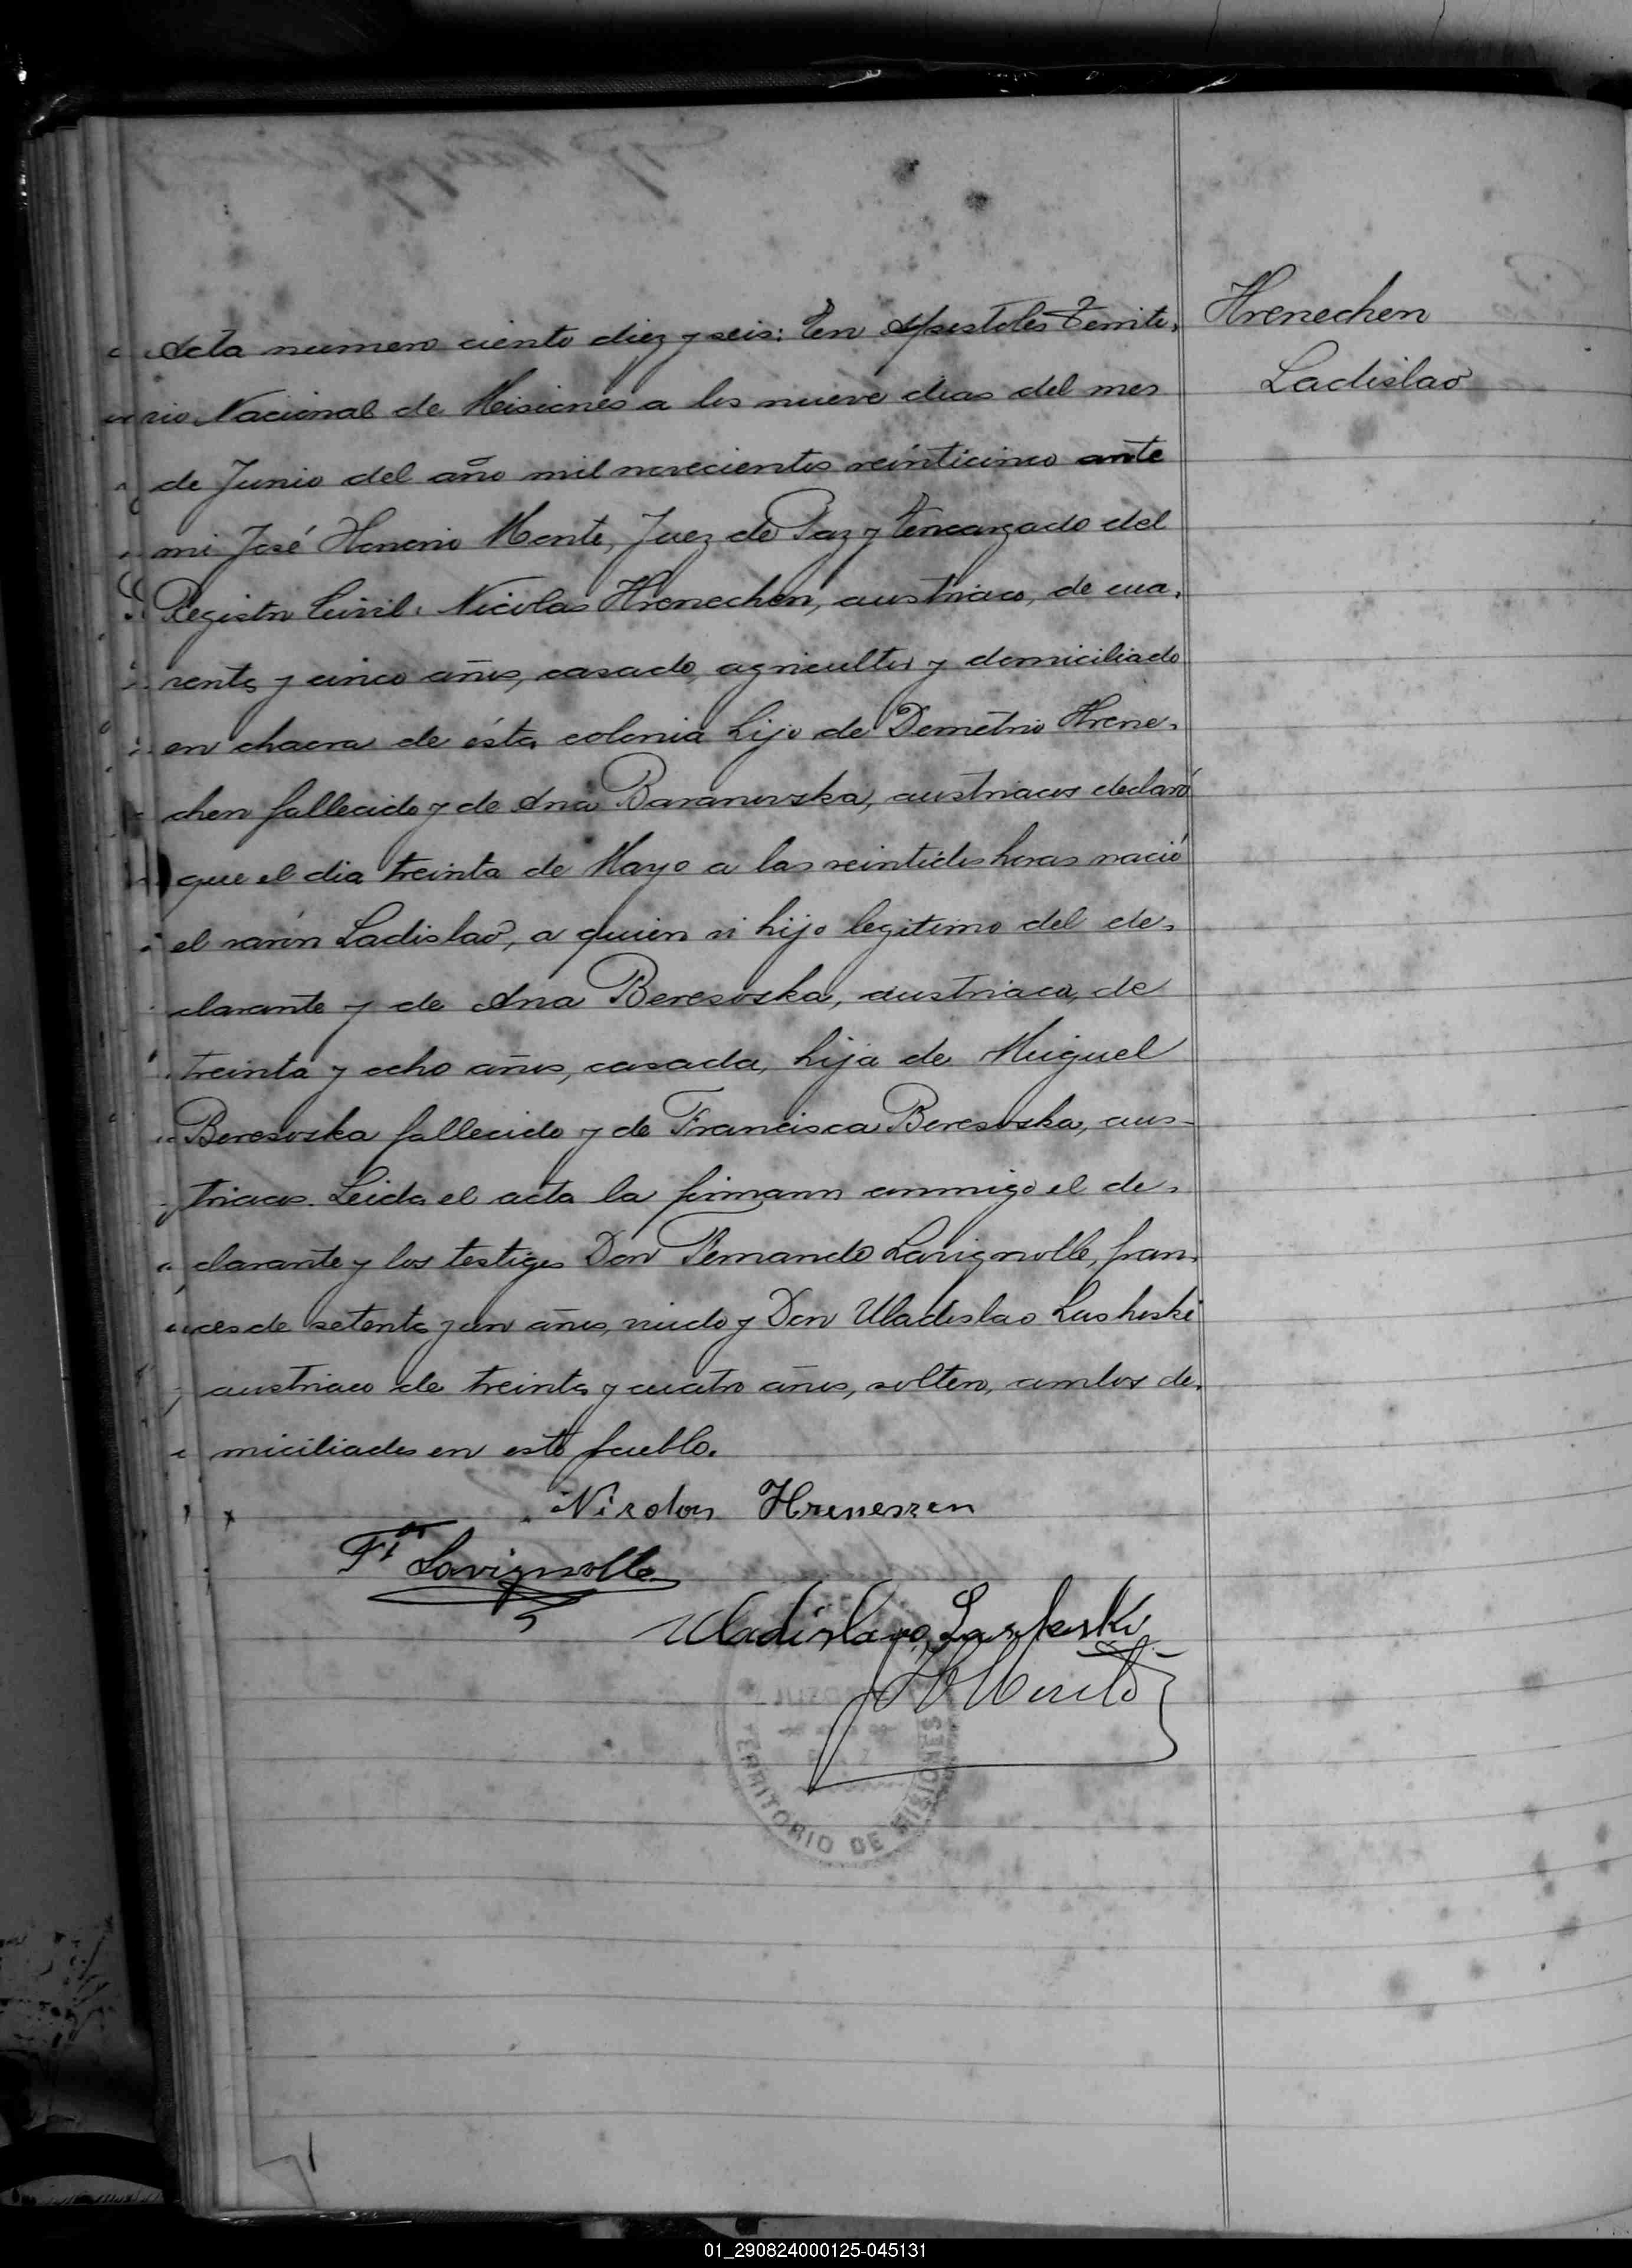 Hrenechen
Ladislao
Acta numero ciento diez y seis: En Apostoles Territo-
rio Nacional de Misiones a los nueve dias del mes
de Junio del año mil novecientos veinticinco ante
mi José Honorio Monte, Juez de Paz y Encargado del
Registro Civil. Nicolas Hrenechen, austriaco, de cua-
renta y cinco años, casado, agricultor y domiciliado
en chacra de ésta colonia hijo de Demetrio Hrene-
chen fallecido y de Ana Baranovska, austriacos declaró
que el dia treinta de Mayo a las veintidos horas nació
el varón Ladislao, a quien vi hijo legitimo del de-
clarante y de Ana Beresoska, austriaca, de
treinta y ocho años, casada, hija de Miguel
Beresoska fallecido y de Francisca Beresoska, aus-
triacos. Leida el acta la firmaron conmigo el de-
clarante y los testigos Don Fernando Lavignolle, fran-
ces de setenta y un años, viudo y Don Uladislao Lasheski
austriaco de treinta y cuatro años, soltero, ambos do-
miciliados en este pueblo.
Nicolas
Fdo Lavignolle
Uladislao
TERRITORIO DE MISIONES
01_290824000125-045131